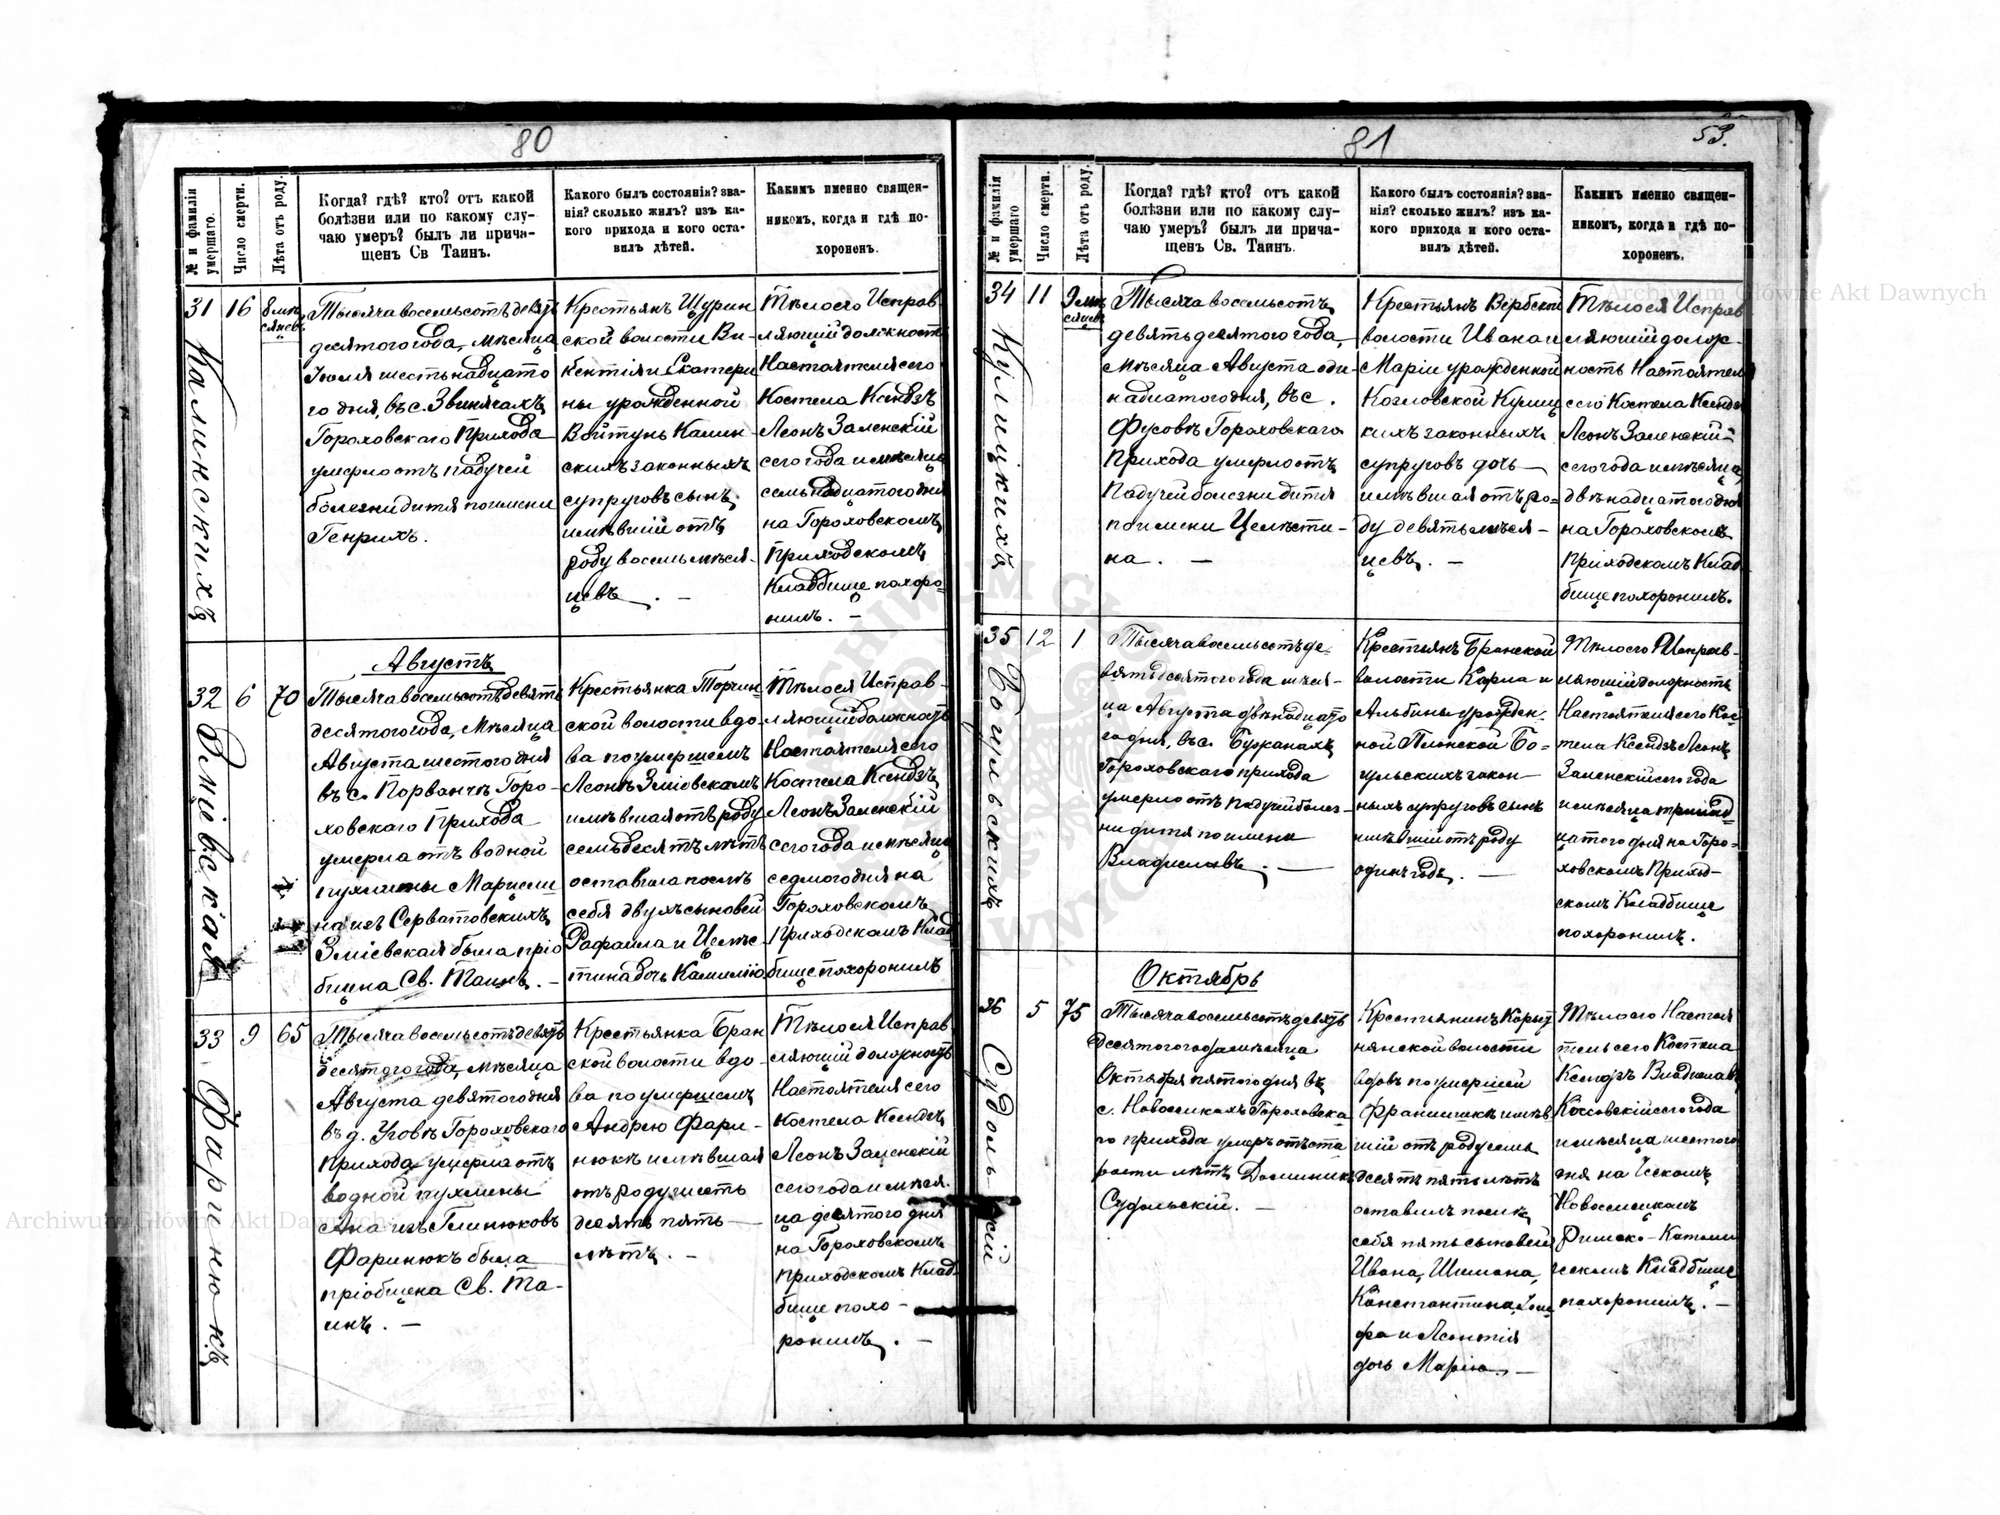 80
№ и фамилія умершаго.
Число смерти.
Лѣта отъ роду.
Когда? гдѣ? кто? отъ какой
болѣзни или по какому слу-
чаю умеръ? былъ ли прича-
щенъ Св Таинъ.
Какого былъ состоянія? зва-
нія? сколько жилъ? изъ ка-
кого прихода и кого оста-
вилъ дѣтей.
Какимъ именно священ-
никомъ, когда и гдѣ по-
хороненъ.
31
Калинскихъ
16
8 мѣ-
сяцевъ
Тысяча восемьсотъ девять
десятого года, мѣсяца
Іюля шестьнадцато
го дня, въ с. Звинячахъ
Гороховскаго Прихода
умерло отъ падучей
болезни дитя по имени
Генрихъ.
Крестьянъ Щурин
ской волости Ви-
кентія и Екатери
ны урожденной
Войтунь Калин-
скихъ законныхъ
супруговъ сынъ
имѣвшій отъ
роду восемь мѣся-
цевъ. —
Тѣло его Исправ-
ляющій должность
Настоятеля сего
Костела Ксендзъ
Леонъ Заленскій
сего года и мѣсяца
семьнадцатого дня
на Гороховскомъ
Приходскомъ
Кладбище похоро-
нилъ. —
Августъ
32
Змiевская
6
70
Тысяча восемьсотъ девять
десятого года, Мѣсяца
Августа шестого дня
въ с. Порванчѣ Горо-
ховскаго Прихода
умерла отъ водной
пухлины Марцели
на изъ Серватовскихъ
Зміевская была прiо
бщена Св. Таинъ. —
Крестьянка Торчин
ской волости вдо-
ва по умершемъ
Леонѣ Зміовскомъ
имѣвшая отъ роду
семьдесятъ лѣтъ
оставила послѣ
себя двухъ сыновей
Рафаила и Целес
тина дочь Камилію
Тѣло ея Исправ-
ляющій должность
Настоятеля сего
Костела Ксендзъ
Леонъ Заленскій
сего года и мѣсяца
седмого дня на
Гороховскомъ
Приходскомъ Клад
бище похоронилъ
33
Фаринюкъ
9
65
Тысяча восемьсотъ девять
десятого года, мѣсяца
Августа девятого дня
въ д. Уговѣ Гороховскаго
Прихода умерла отъ
водной пухлены
Ана изъ Глинюковъ
Фаринюкъ была
пріобщена Св. Та-
инъ. —
Крестьянка Бран
ской волости вдо-
ва по умершемъ
Андрею Фари-
нюкѣ имѣвшая
отъ роду шесть
десять пять
лѣтъ. —
Тѣло ея Исправ
ляющій должность
Настоятеля сего
Костела Ксендзъ
Леонъ Заленскій
сего года и мѣся-
ца десятого дня
на Гороховскомъ
приходскомъ Клад-
бище похо-
ронилъ. —
81
53.
№ и фамилія умершаго
Число смерти.
Лѣта отъ роду.
Когда? гдѣ? кто? отъ какой
болѣзни или по какому слу-
чаю умеръ? былъ ли прича-
щенъ Св. Таинъ.
Какого былъ состоянія? зва-
нія? сколько жилъ? изъ ка-
кого прихода и кого оста-
вилъ дѣтей.
Какимъ именно священ-
никомъ, когда и гдѣ по-
хороненъ.
34
Кулицкихъ
11
9 мѣ
сяцевъ
Тысяча восемьсотъ
девятьдесятого года,
мѣсяца Августа оди-
надцатого дня, въ с.
Фусовѣ Гороховскаго
Прихода умерло отъ
Падучей болезни дитя
по имени Целести-
на. —
Крестьянъ Вербской
волости Ивана и
Маріи урожденной
Козловской Кулиц
кихъ законныхъ
супруговъ дочь
имѣвшая отъ ро-
ду девять мѣся-
цевъ. —
Тѣло ея Исправ
ляющій долж-
ность Настоятеля
сего Костела Ксендзъ
Леонъ Заленскій
сего года и мѣсяца
двѣнадцатого дня
на Гороховскомъ
Приходскомъ Клад
бище похоронилъ.
35
Богульскихъ
12
1
Тысяча восемьсотъ де-
вятьдесятого года мѣся-
ца Августа двѣнадцато
го дня, въ с. Бужанахъ
Гороховскаго прихода
умерло отъ падучій болез-
ни дитя по имени
Владиславъ. —
Крестьянъ Бранской
волости Карла и
Альбины урожден-
ной Плонской Бо-
гульскихъ закон-
ныхъ супруговъ сынъ
имѣвшій отъ роду
одинъ годъ. —
Тѣло его Исправ-
ляющій должность
Настоятеля сего Кос-
тела Ксендзъ Леонъ
Заленскій сего года
и мѣсяца тринад-
цатого дня на Горо-
ховскомъ Приход-
скомъ Кладбище
похоронилъ.
Октябрь
36
Судольскій
5
75
Тысяча восемьсотъ девять
десятого года мѣсяца
Октября пятого дня въ
с. Новоселкахъ Гороховска
го прихода умеръ отъ ста
рости лѣтъ Доминикъ
Судольскій. —
Крестьянинъ Корыт
нянской волости
вдовъ по умершей
Францишкѣ имѣв
шій отъ роду семь
десятъ пять лѣтъ
оставилъ послѣ
себя пять сыновей
Ивана, Шимона,
Константина, Іози
фа и Леонтія
дочь Марію. —
Тѣло его Настоя
тель сего Костела
Ксендзъ Владиславъ
Коссовскій сего года
и мѣсяца шестого
дня на Чешскомъ
Новоселскомъ
Римско-Католи
ческомъ Кладбище
похоронилъ. —
Archiwum Główne Akt Dawnych
Archiwum Główne Akt Dawnych